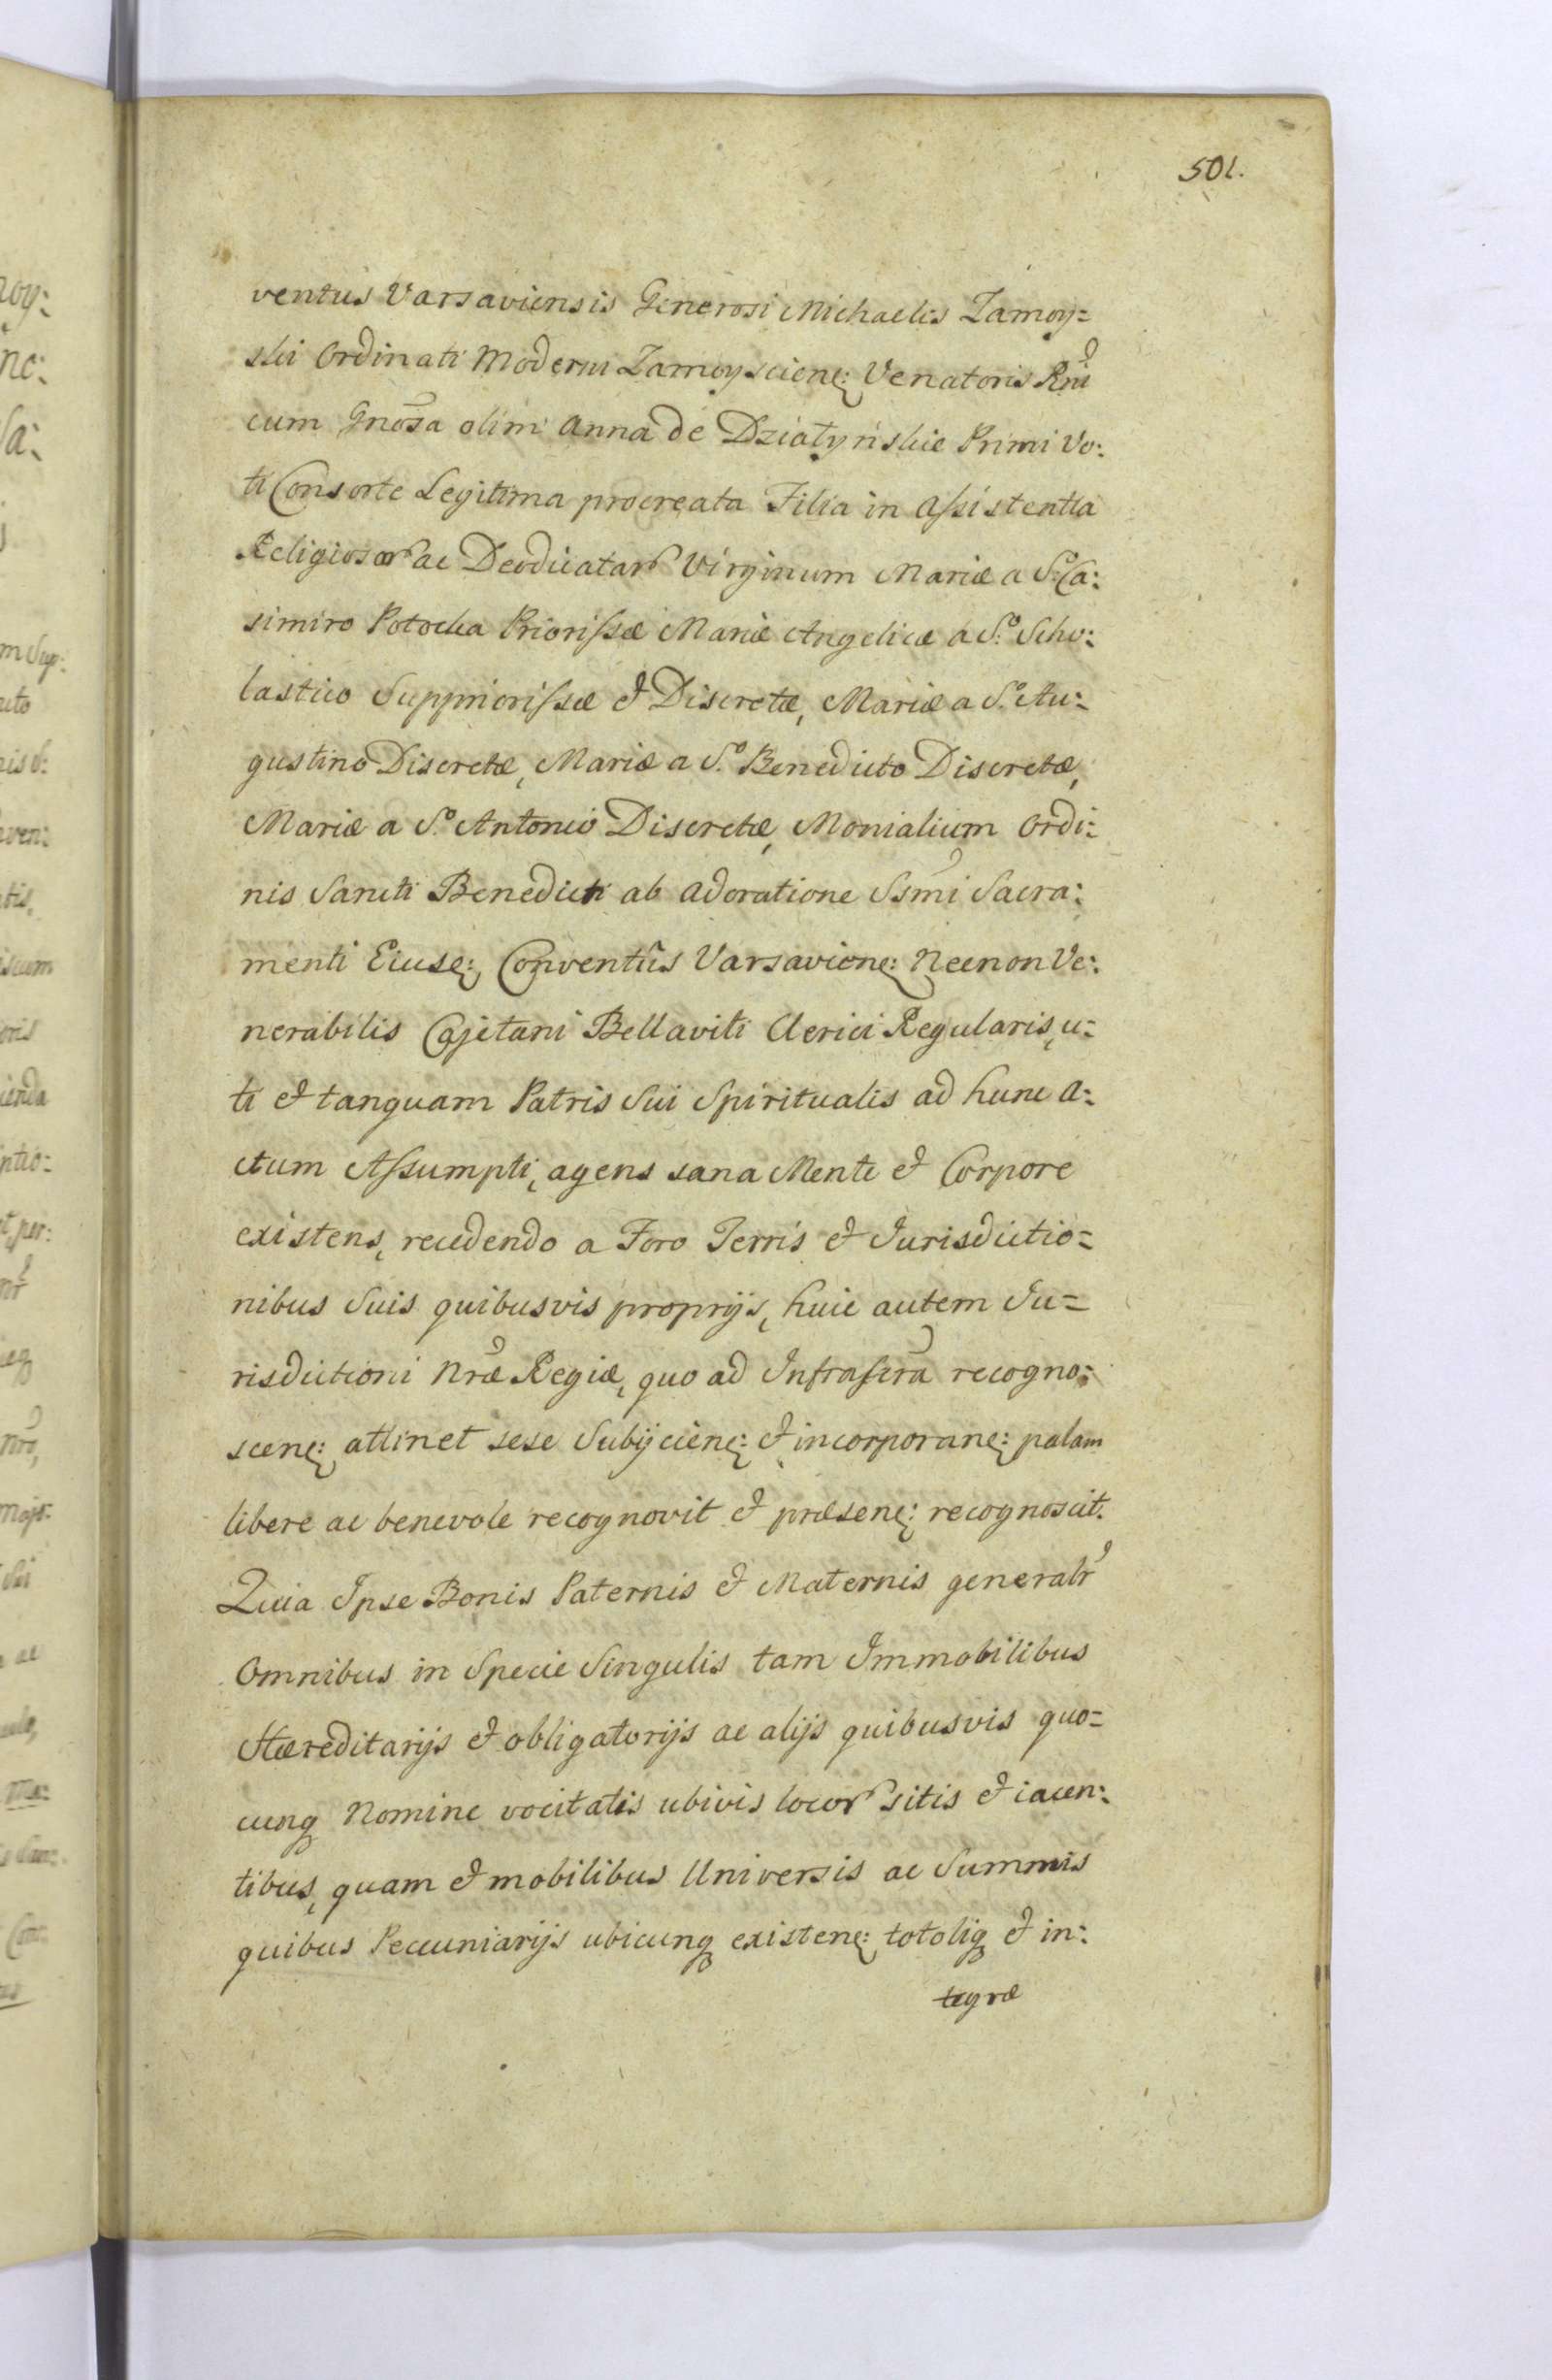 501.
ventus Varsaviensis Generosi Michaelis Zamoy=
ski Ordinati Moderni Zamoyscienę: Venatoris Rni
cum Gnosa olim Anna de Działyńskie Primi Vo:
ti Consorte Legitima procreata Filia in Assistentia
Religiosor ac Deodicatar Virginum Mariæ a S: Ca:
simiro Potocka Priorissæ Mariæ Angelicæ a S.º Scho:
lastico Suppriorissæ et Discretæ, Mariæ a S.º Au:
gustino Discretæ, Mariæ a S.º Benedicto Discretæ,
Mariæ a S.º Antonio Discretæ, Monialium Ordi:
nis Sancti Benedicti ab adoratione Ssmi Sacra:
menti Eiusę: Conventûs Varsavienę: Necnon Ve:
nerabilis Cajetani Bellaviti Clerici Regularis, u=
ti et tanquam Patris Sui Spiritualis ad hunc A:
ctum Assumpti, agens sana Mente et Corpore
existens, recedendo a Foro Terris et Jurisdictio=
nibus Suis quibusvis proprijs, huic autem Ju=
risdictioni Nræ Regiæ, quo ad Infrascra recogno:
scenę: attinet sese Subijcienę: et incorporanę: palam
libere ac benevole recognovit et præsenę: recognoscit.
Quia Ipse Bonis Paternis et Maternis generalr
Omnibus in Specie Singulis tam Immobilibus
Hæreditarijs et obligatorijs ac alijs quibusvis quo=
cunq Nomine vocitatis ubivis locor sitis et iacen:
tibus, quam et mobilibus Universis ac Summis
quibus Pecuniarijs ubicunq existenę: totoliq et in:
tegræ